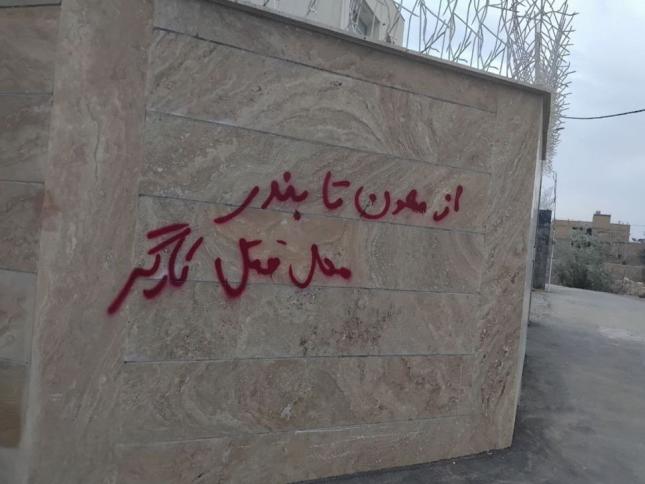 از معدن تا بندر
محل قتل کارگر